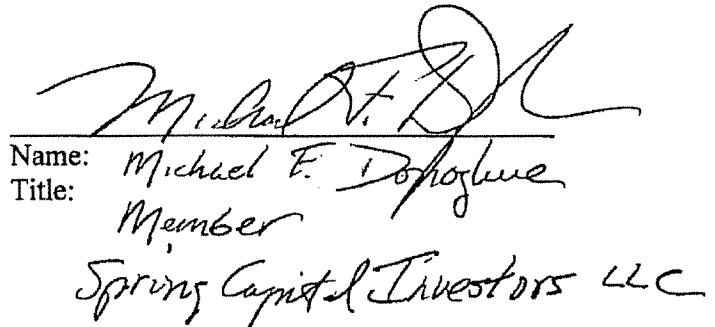 Michael F. D
Name: Michael F. Donoghue
Title: Member
Spring Capital Investors LLC